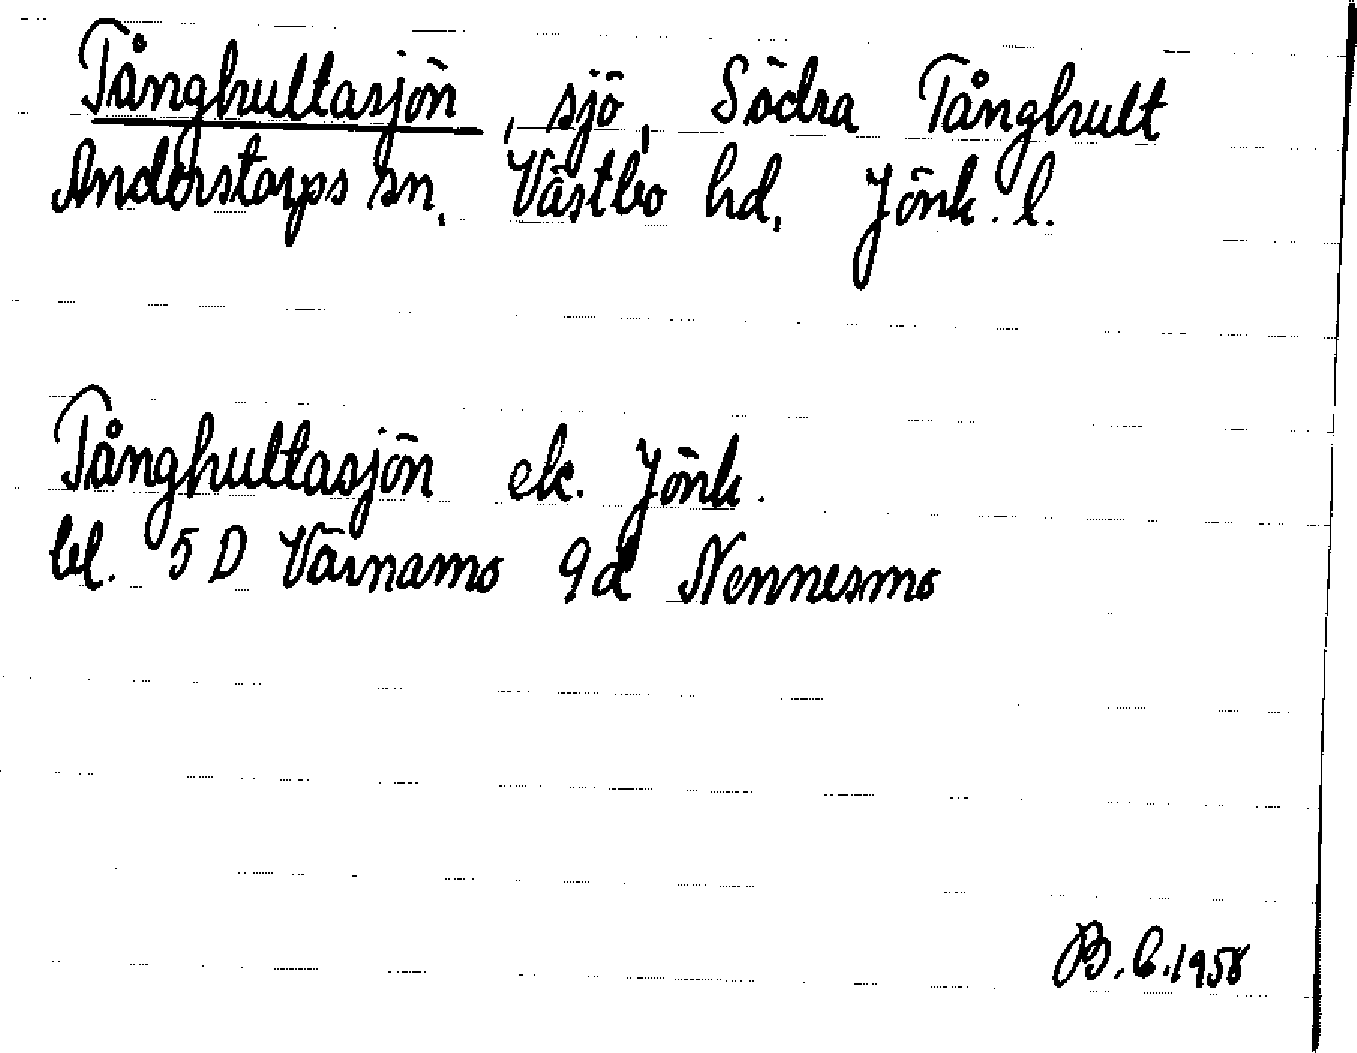 Tånghultasjön, sjö, Södra Tånghult
Anderstorps sn, Västbo hd, Jönk. l.
Tånghultasjön ek. Jönk.
bl. 5 D Värnamo 9d Nennesmo
B. C. 1958